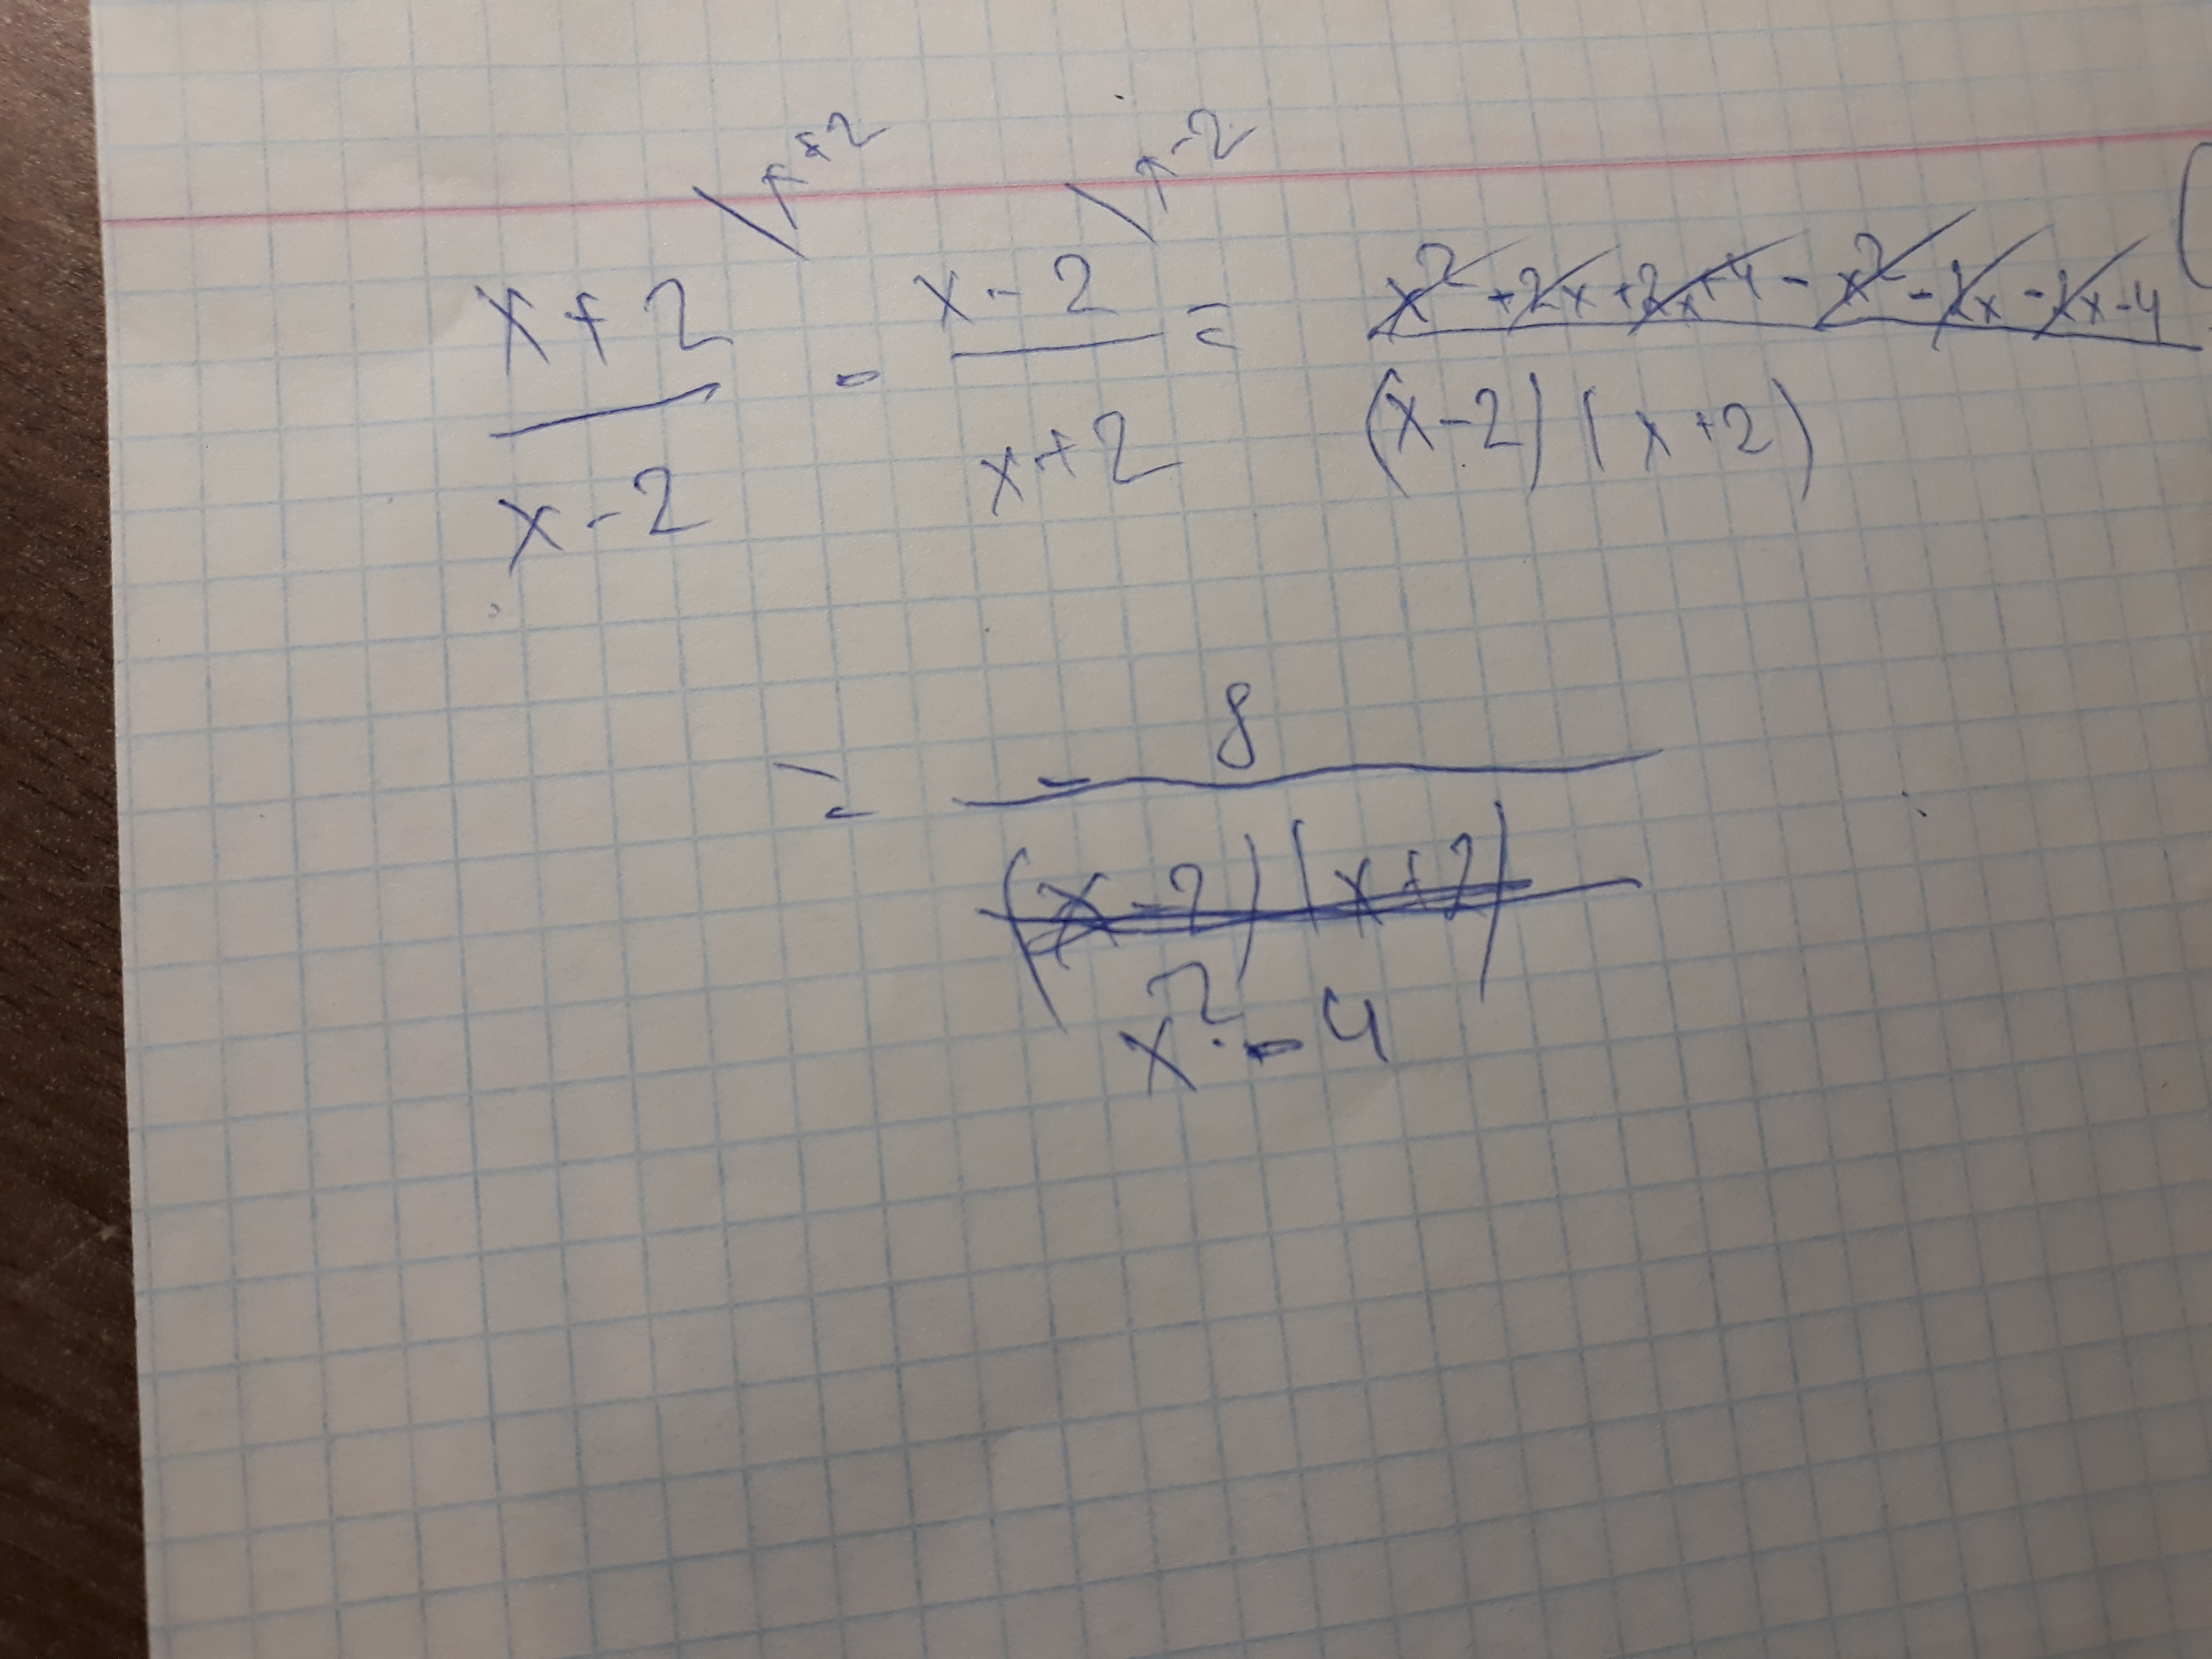 x+2 x-2
x+2 / x-2 - x-2 / x+2 = x²+2x+2x+4-x²-2x-2x-4 / (x-2)(x+2)
= -8 / (x-2)(x+2)
x²-4